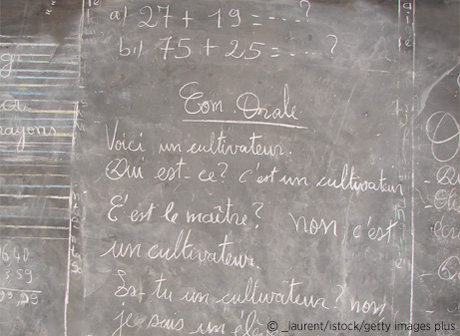 a) 27 + 19 = ---- ?
b.) 75 + 25 = ---- ?
Com Orale
Voici un cultivateur.
Qui est-ce? c'est un cultivateur
C'est le maître? non c'est
un cultivateur.
Es-tu un cultivateur? non
je suis un élè
rayons
© _laurent/istock/getty images plus